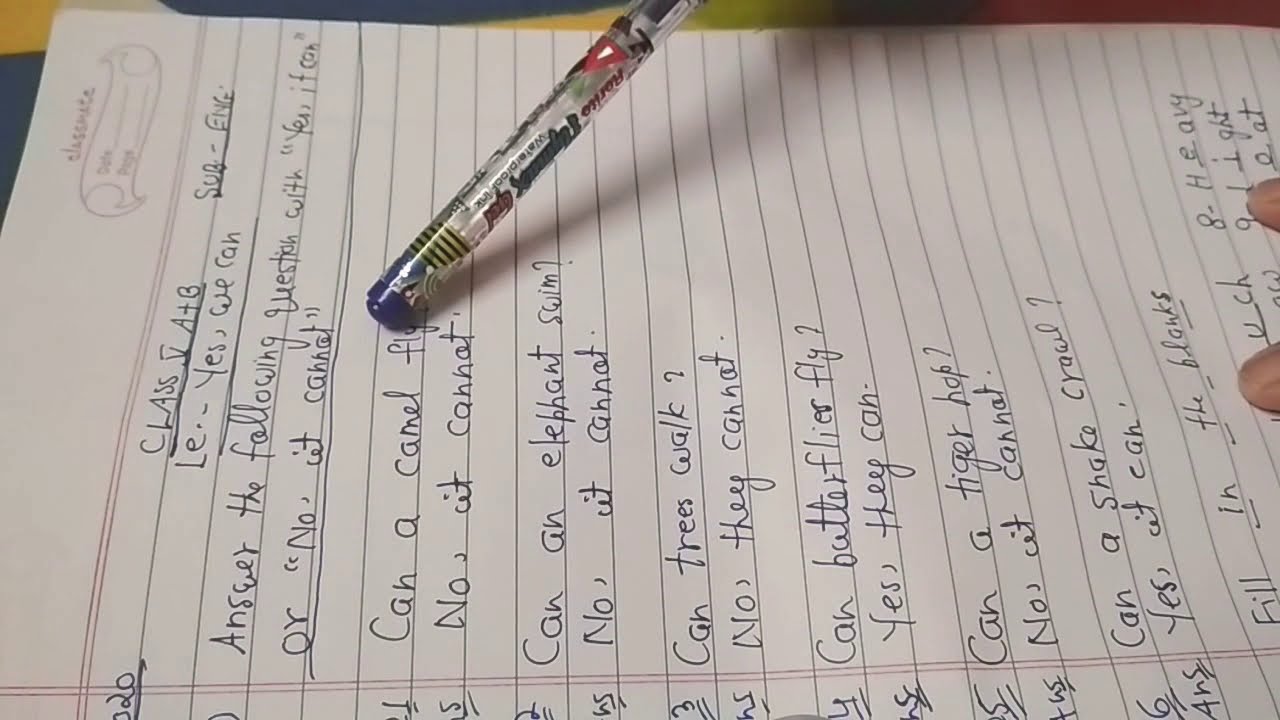 classmate
Date
Page
2020
CLASS V A+B
SUB - ENG.
Le.- Yes, we can
Answer the following question with "Yes, it can"
or "No, it cannot"
Can a camel fly
No, it cannot.
2 Can an elephant swim?
ns No, it cannot.
3 Can trees walk?
ns No, they cannot.
4 Can butterflies fly?
ns Yes, they can.
5 Can a tiger hop?
Ans No, it cannot.
6 Can a snake crawl?
Ans Yes, it can.
Fill in the blanks
8- Heavy
9- Light
eat
uch
aw
Rorito
Gel
waterproof ink